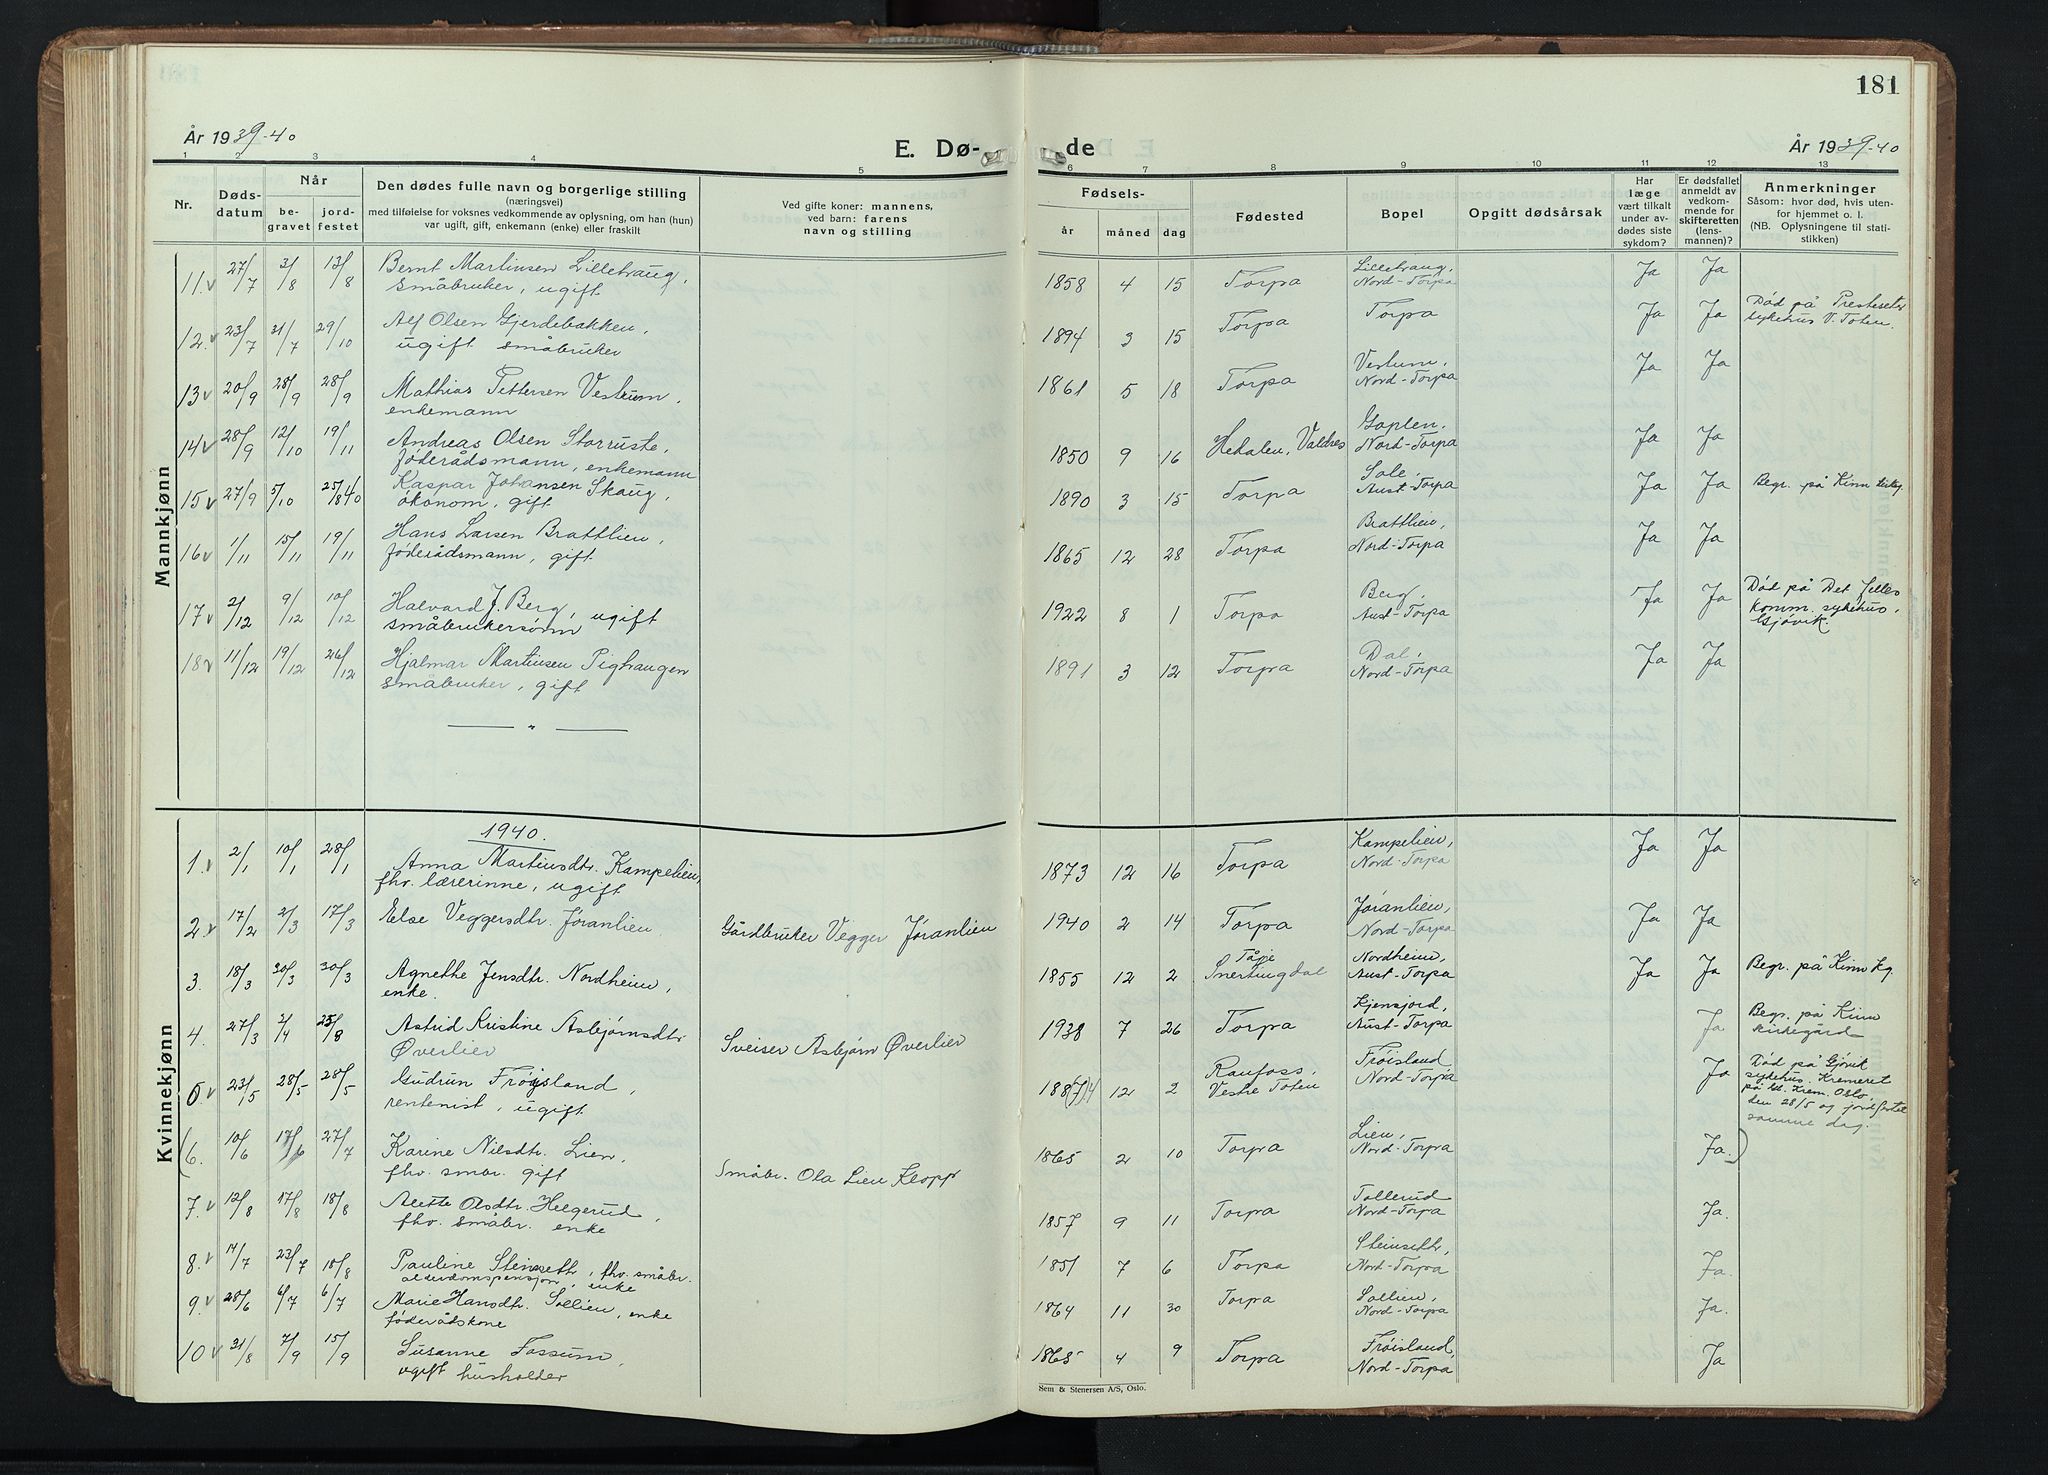 181
År 1939-40
E. Dø-
de
År 1939-40
1 2 3 4 5 6 7 8 9 10 11 12 13
Nr.
Dødsdatum
Når
begravet
jordfestet
Den dødes fulle navn og borgerlige stilling
(næringsvei)
med tilføielse for voksnes vedkommende av oplysning, om han (hun)
var ugift, gift, enkemann (enke) eller fraskilt
Ved gifte koner: mannens,
ved barn: farens
navn og stilling
Fødsels-
år måned dag
Fødested
Bopel
Opgitt dødsårsak
Har
læge
vært tilkalt
under avdødes siste
sykdom?
Er dødsfallet
anmeldt av
vedkommende for
skifteretten
(lensmannen)?
Anmerkninger
Såsom: hvor død, hvis utenfor hjemmet o. l.
(NB. Oplysningene til statistikken)
Mannkjønn
11. 27/7 3/8 13/8 Bernt Martinsen Lillehaug, 1858 4 15 Torpa Lillehaug, Ja Ja
småbruker, ugift Nord-Torpa
12. 23/7 31/7 29/10 Alf Olsen Gjerdebakken, 1894 3 15 Torpa Torpa Ja Ja Død på Presteseter
ugift småbruker sykehus V. Toten.
13 20/9 28/9 28/9 Mathias Pettersen Vestrum, 1861 5 18 Torpa Vestum, Ja Ja
enkemann Nord-Torpa
14 28/9 12/10 19/11 Andreas Olsen Storruste, 1850 9 16 Hedalen, Valdres Goplen, Ja Ja
føderådsmann, enkemann Nord-Torpa
15 27/9 5/10 25/8 40 Kaspar Johansen Skaug, 1890 3 15 Torpa Sole, Ja Ja Begr. på Kinn
økonom, gift Aust-Torpa
16 1/11 15/11 19/11 Hans Larsen Brattlien, 1865 12 28 Torpa Brattlien, Ja Ja
føderådsmann, gift Nord-Torpa
17 2/12 9/12 10/12 Halvard J. Berg, ugift 1922 8 1 Torpa Berg, Ja Ja Død på Det felles
småbrukersønn Aust-Torpa komm. sykehus,
Gjøvik.
18 11/12 19/12 26/12 Hjalmar Martinsen Pighaugen 1891 3 12 Torpa Dal, Ja Ja
småbruker, gift Nord-Torpa
— " —
Kvinnekjønn
1940.
1. 2/1 10/1 28/1 Anna Martinsdtr. Kampelien, 1873 12 16 Torpa Kampelien, Ja Ja
fhv. lærerinne, ugift Nord-Torpa
2. 17/2 2/3 17/3 Else Veggersdtr. Jøranlien Gårdbruker Vegger Jøranlien 1940 2 14 Torpa Jøranlien, Ja Ja
Nord-Torpa
3. 18/3 30/3 30/3 Agnethe Jensdtr. Nordheim, 1855 12 2 Snertingdal Nordheim, Ja Ja Begr. på Kinn kg.
enke. Aust-Torpa
4. 27/3 2/4 25/8 Astrid Kristine Asbjørnsdtr Sveiser Asbjørn Øverlier 1938 7 26 Torpa Kjensjord, Ja Begr. på Kinn
Øverlier Aust-Torpa kirkegård
5. 23/5 28/5 28/5 Gudrun Frøysland, 188(7)4 12 2 Raufoss, Frøisland Ja Død på Gjøvik
rentenist, ugift Vestre Toten Nord-Torpa sykehus. Kremeret
på Krem. Oslo,
den 28/5 og jordfestet
samme dag.
(6. 10/6 17/6 27/7 Karine Nilsdtr. Lien, Småbr. Ola Lien Klopp 1865 2 10 Torpa Lien, Ja.)
fhv. smbr. gift Nord-Torpa
7. 12/8 17/8 18/8 Alette Olsdtr. Helgerud, 1857 9 11 Torpa Tollerud Ja.
fhv. småbr. enke Nord-Torpa
8. 14/7 23/7 18/8 Pauline Stenseth, fhv. småbr. 1851 7 6 Torpa Steinseth, Ja.
alderdomspensjon, enke Nord-Torpa
9. 28/6 6/7 6/7 Marie Hansdtr. Sollien, enke 1864 11 30 Torpa Sollien, Ja.
føderådskone Nord-Torpa
10 31/8 7/9 15/9 Susanne Fossum, 1865 4 9 Torpa Frøisland, Ja
ugift husholder Nord-Torpa
Sem & Stenersen A/S, Oslo.